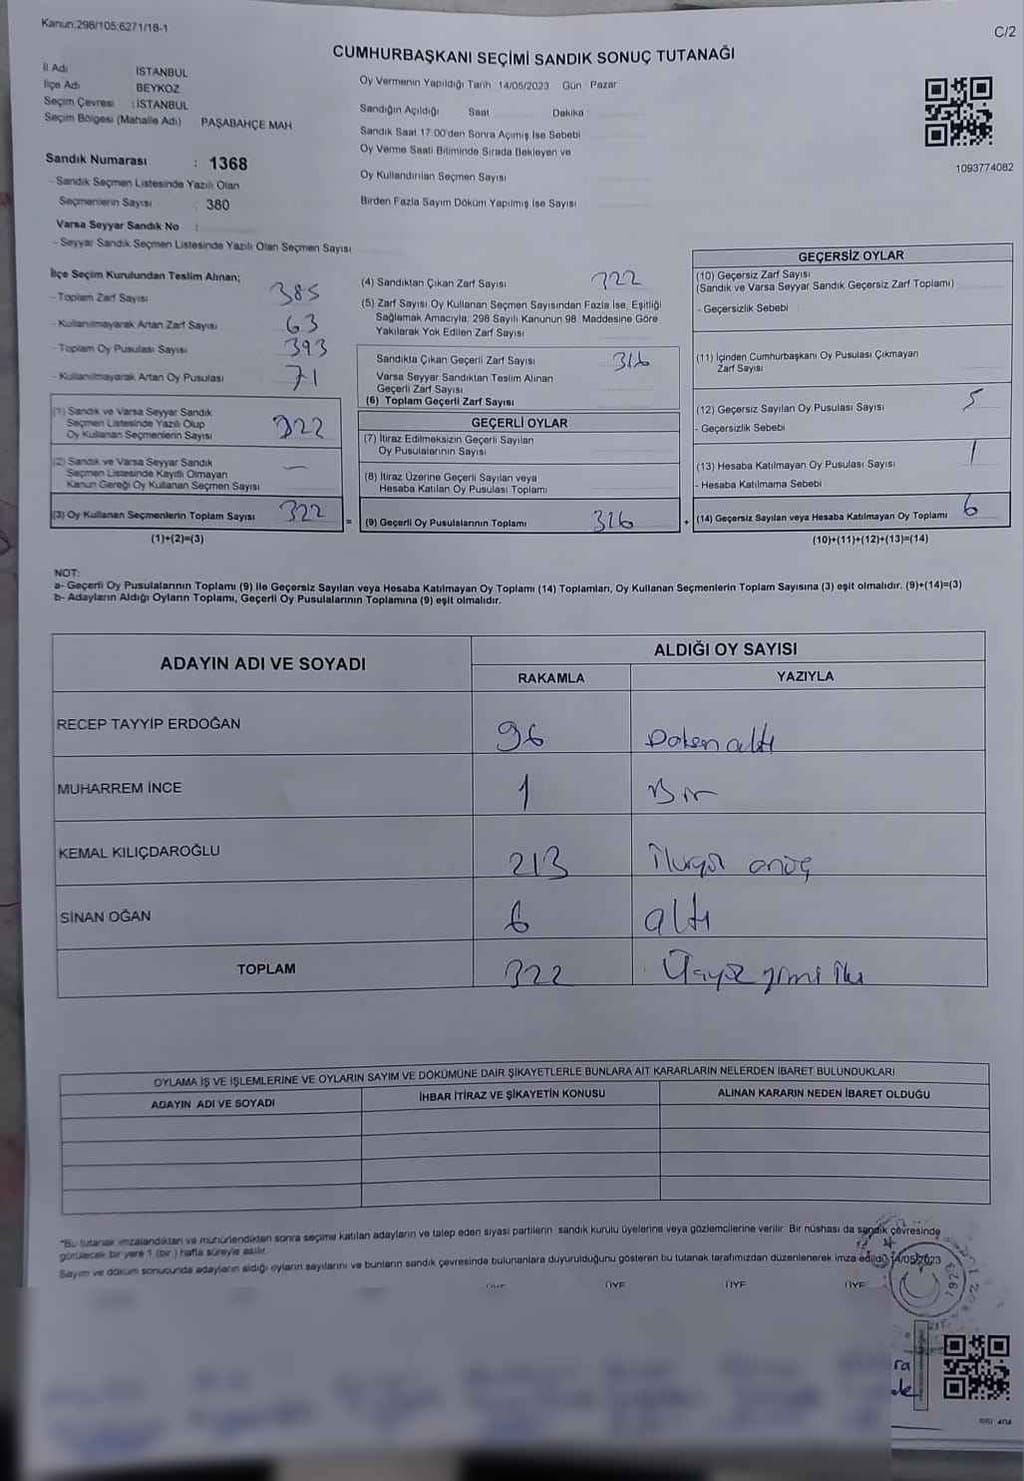 Kanun:298/105;6271/18-1
C/2
CUMHURBAŞKANI SEÇİMİ SANDIK SONUÇ TUTANAĞI
İl Adı : İSTANBUL
İlçe Adı : BEYKOZ
Seçim Çevresi : İSTANBUL
Seçim Bölgesi (Mahalle Adı) PAŞABAHÇE MAH
Sandık Numarası : 1368
- Sandık Seçmen Listesinde Yazılı Olan
Seçmenlerin Sayısı : 380
Varsa Seyyar Sandık No :
- Seyyar Sandık Seçmen Listesinde Yazılı Olan Seçmen Sayısı
Oy Vermenin Yapıldığı Tarih 14/05/2023 Gün Pazar
Sandığın Açıldığı Saat Dakika
Sandık Saat 17:00'den Sonra Açılmış İse Sebebi
Oy Verme Saati Bitiminde Sırada Bekleyen ve
Oy Kullandırılan Seçmen Sayısı
Birden Fazla Sayım Döküm Yapılmış İse Sayısı
1093774082
İlçe Seçim Kurulundan Teslim Alınan;
- Toplam Zarf Sayısı 385
- Kullanılmayarak Artan Zarf Sayısı 63
- Toplam Oy Pusulası Sayısı 393
- Kullanılmayarak Artan Oy Pusulası 71
(1) Sandık ve Varsa Seyyar Sandık
Seçmen Listesinde Yazılı Olup
Oy Kullanan Seçmenlerin Sayısı 322
(2) Sandık ve Varsa Seyyar Sandık
Seçmen Listesinde Kayıtlı Olmayan
Kanun Gereği Oy Kullanan Seçmen Sayısı —
(3) Oy Kullanan Seçmenlerin Toplam Sayısı 322
(1)+(2)=(3)
(4) Sandıktan Çıkan Zarf Sayısı 322
(5) Zarf Sayısı Oy Kullanan Seçmen Sayısından Fazla İse, Eşitliği
Sağlamak Amacıyla, 298 Sayılı Kanunun 98. Maddesine Göre
Yakılarak Yok Edilen Zarf Sayısı
Sandıkta Çıkan Geçerli Zarf Sayısı 316
Varsa Seyyar Sandıktan Teslim Alınan
Geçerli Zarf Sayısı
(6) Toplam Geçerli Zarf Sayısı
GEÇERLİ OYLAR
(7) İtiraz Edilmeksizin Geçerli Sayılan
Oy Pusulalarının Sayısı
(8) İtiraz Üzerine Geçerli Sayılan veya
Hesaba Katılan Oy Pusulası Toplamı
= (9) Geçerli Oy Pusulalarının Toplamı 316
GEÇERSİZ OYLAR
(10) Geçersiz Zarf Sayısı
(Sandık ve Varsa Seyyar Sandık Geçersiz Zarf Toplamı)
- Geçersizlik Sebebi
(11) İçinden Cumhurbaşkanı Oy Pusulası Çıkmayan
Zarf Sayısı
(12) Geçersiz Sayılan Oy Pusulası Sayısı 5
- Geçersizlik Sebebi
(13) Hesaba Katılmayan Oy Pusulası Sayısı 1
- Hesaba Katılmama Sebebi
+ (14) Geçersiz Sayılan veya Hesaba Katılmayan Oy Toplamı 6
(10)+(11)+(12)+(13)=(14)
NOT:
a- Geçerli Oy Pusulalarının Toplamı (9) ile Geçersiz Sayılan veya Hesaba Katılmayan Oy Toplamı (14) Toplamları, Oy Kullanan Seçmenlerin Toplam Sayısına (3) eşit olmalıdır. (9)+(14)=(3)
b- Adayların Aldığı Oyların Toplamı, Geçerli Oy Pusulalarının Toplamına (9) eşit olmalıdır.
ADAYIN ADI VE SOYADI
ALDIĞI OY SAYISI
RAKAMLA YAZIYLA
RECEP TAYYİP ERDOĞAN 96 Doksan altı
MUHARREM İNCE 1 Bir
KEMAL KILIÇDAROĞLU 213 İkiyüz onüç
SİNAN OĞAN 6 altı
TOPLAM 322 Üçyüz yirmi iki
OYLAMA İŞ VE İŞLEMLERİNE VE OYLARIN SAYIM VE DÖKÜMÜNE DAİR ŞİKAYETLERLE BUNLARA AİT KARARLARIN NELERDEN İBARET BULUNDUKLARI
ADAYIN ADI VE SOYADI İHBAR İTİRAZ VE ŞİKAYETİN KONUSU ALINAN KARARIN NEDEN İBARET OLDUĞU
*Bu tutanak imzalandıktan ve mühürlendikten sonra seçime katılan adayların ve talep eden siyasi partilerin sandık kurulu üyelerine veya gözlemcilerine verilir. Bir nüshası da sandık çevresinde
görülecek bir yere 1 (bir) hafta süreyle asılır.
Sayım ve döküm sonucunda adayların aldığı oyların sayılarını ve bunların sandık çevresinde bulunanlara duyurulduğunu gösteren bu tutanak tarafımızdan düzenlenerek imza edildi. 14/05/2023
ÜYE ÜYE ÜYE ÜYE